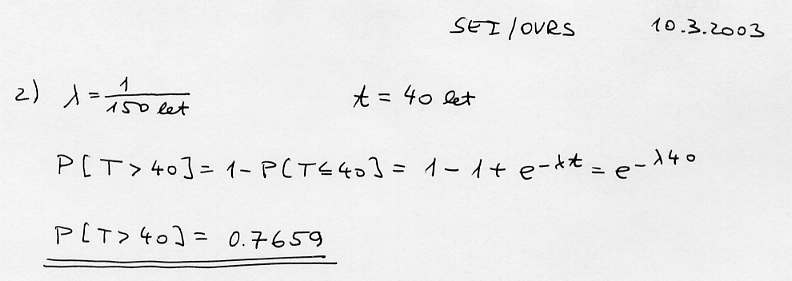 SEI/OVRS 10.3.2003
2) λ = 1/150 let t = 40 let
P[T > 40] = 1 - P[T ≤ 40] = 1 - 1 + e^-λt = e^-λ40
P[T > 40] = 0.7659